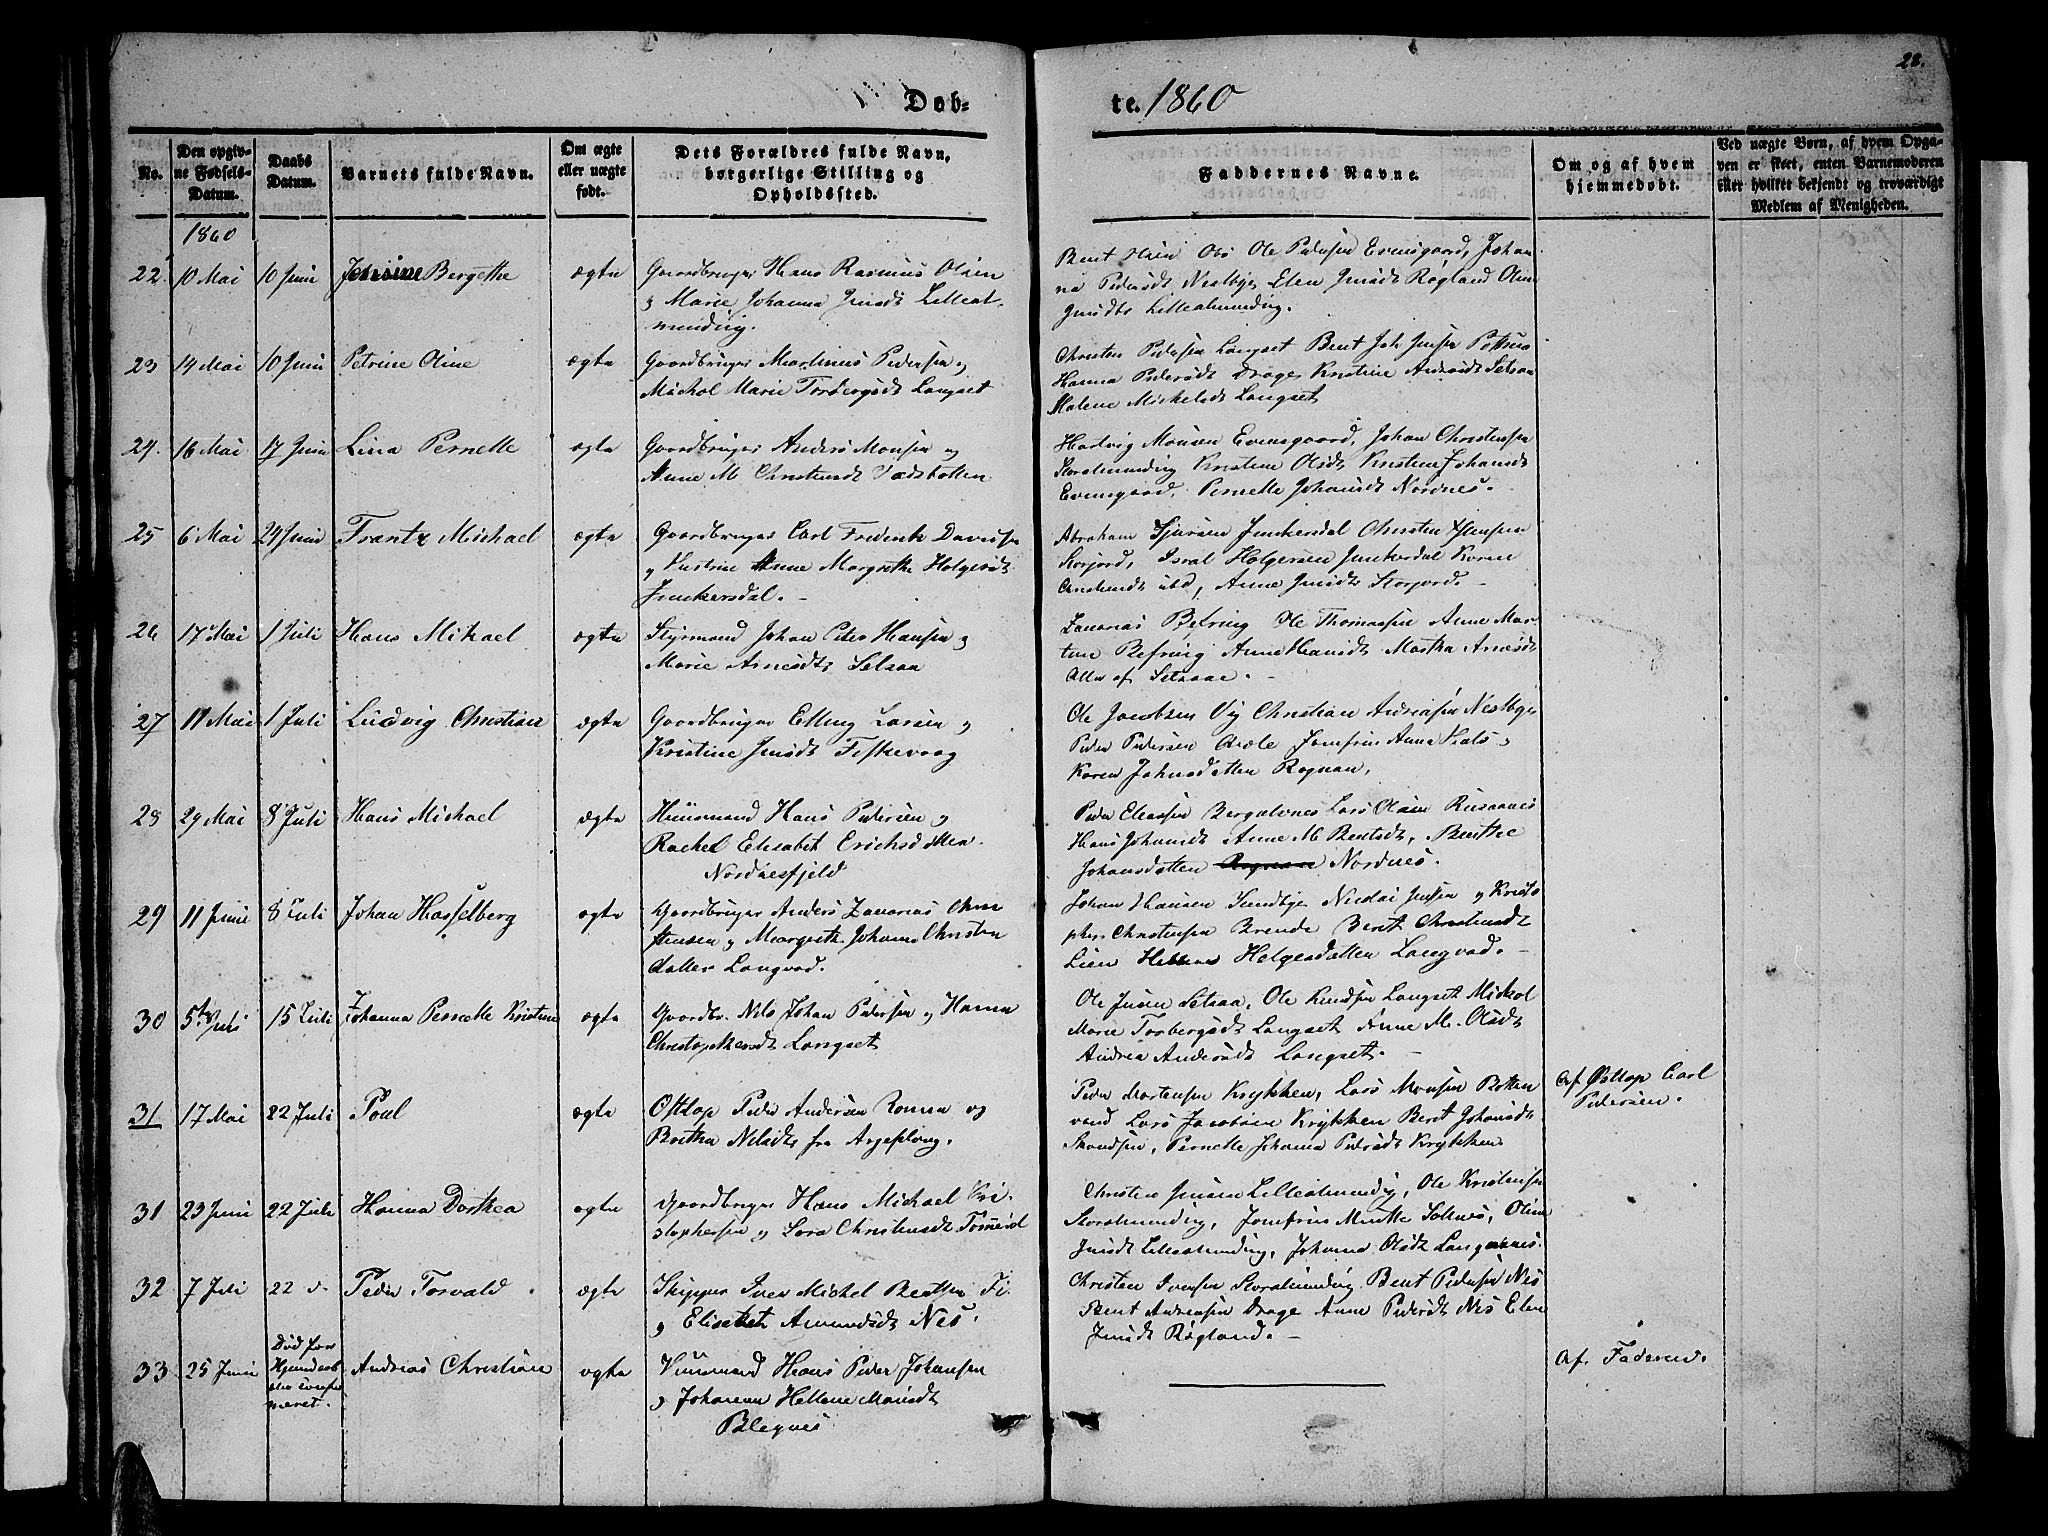 28.
Døb-
te. 1860
No.
Den opgiv-
ne Fødsels-
Datum.
Daabs
Datum.
Barnets fulde Navn.
Om ægte
eller uægte
født.
Dets Forældres fulde Navn,
borgerlige Stilling og
Opholdssted.
Faddernes Navne.
Om og af hvem
hjemmedøbt.
Ved uægte Børn, af hvem Opga-
ven er skeet, enten Barnemoderen
eller hvilket bekjendt og troværdigt
Medlem af Menigheden.
1860
22. 10 Mai 10 Juni Bergethe ægte Gaardbruger Hans Rasmus Olsen
og Marie Johanna Jensdt Lilleal-
mundvig.
Bent Ole Pedersen Evensgaard, Johan-
na Pedersdt Nestbye Elen Jensdt Røgland
Jensdtr Lillealmundvig.
23 14 Mai 10 Juni Petrine Oline ægte Gaardbruger Martinus Pedersen og
Michol Marie Torbergsdt Langset
Christen Pedersen Langset Bent Joh Jensen
Hanna Pedersdt Drage Kristine Andersdt Setsaa
Malene Mickelsdt Langset
24. 16 Mai 17 Juni Lina Pernelle ægte Gaardbruger Anders Monsen og
Anne M Christensdt Vadsbotten
Hartvig Monsen Evensgaard, Johan Christensen
Storalmundvig Kristine Olsdt Kristine Johansdt
Evensgaard, Pernelle Johansdt Nordnes.
25 6 Mai 24 Juni Frantz Michael ægte Gaardbruger Carl Frederik Davidsen
og Hustrue Anne Margrethe Holgersdt
Junkersdal.
Abraham Sjursen Junkersdal Christen Hansen
Storjord, Isral Holgersen Junkerdal Karen
Christensdt ibd, Anne Jensdt Storjord.
26 17 Mai 1 Juli Hans Mikael ægte Styrmand Johan Peter Hansen og
Marie Arnesdtr Setsaa
Zakarias Befring Ole Thomassen Anne Mar-
tine Befring Anne Hansdt Martha Arnesdt
Alle af Setsaae.
27 11 Mai 1 Juli Ludvig Christian ægte Gaardbruger Elling Larsen og
Kristine Jensdt Fiskevaag
Ole Jacobsen Vig Christian Andreasen Nestbye
Peder Pedersen Jomfru Anna
Karen Johnsdatter Rognan,
28 29 Mai 8 Juli Hans Michael ægte Huusmand Hans Pedersen og
Rachel Elisabet Erichsdatter
Nordnesfjeld
Peder Eliassen Bergulvnes Lars Olsen Rusaanes
Hans Johansdt Anne M. Bentsdt, Benthe
Johansdatter Rognan Nordnes.
29 11 Juni 8 Juli Johan Hasselberg ægte Gaardbruger Anders Zakarias Chri
stensen og Margrethe Johanna Christen
datter Langvad.
Johan Hansen Sundbye Nicolai Jensen og Kristo
pher Christensen Brende Berit Christensdt
Lien Hellene Holgersdatter Langvad.
30 15 Juli Johanna Pernelle Kristine ægte Gaardbr. Nils Johan Pedersen og Hanna
Christophersdt Langset
Ole Jensen Setsaa, Ole Knudsen Langset Mickol
Marie Torbergsdt Langset Anne M. Olsdt
Andrea Andersdt Langset.
31 17 Mai 22 Juli Poul ægte Østlap Peder Andersen Ranna og
Britha Nilsdtr fra Arjeplaug.
Peder Mortensen Krykken, Lars Monsen Botten
vand Lars Jacobsen Krykken Berit Johansdt
Pernelle Johanna Pedersdt Krykken
Af Østlap Carl
Pedersen.
31 23 Juni 22 Juli Hanna Dorthea ægte Gaardbruger Hans Michael Kri-
stophersen og Lora Christensdt
Christen Jensen Lillealmundvig, Ole Kristensen
Storalmundvig, Jomfrue Saltnes, Oline
Jensdt Lillealmundvig, Johanna Olsdt Langaanes.
32 7 Juli 22 d. Peder Torvald ægte Skipper Iver Michel Bentsen
og Elisabet Amundsdt Nes.
Christen Iversen Storalmundvig Bent Pedersen Nes
Bent Andreasen Drage Anne Pedersdt Nes Elen
Jensdt Røgland.
33 25 Juni Død før
Hjemmedaab
meret. Andreas Christian ægte Huusmand Hans Peder Johansen
og Johanna Hellene Monsdt
Blegnes
Af Faderen.